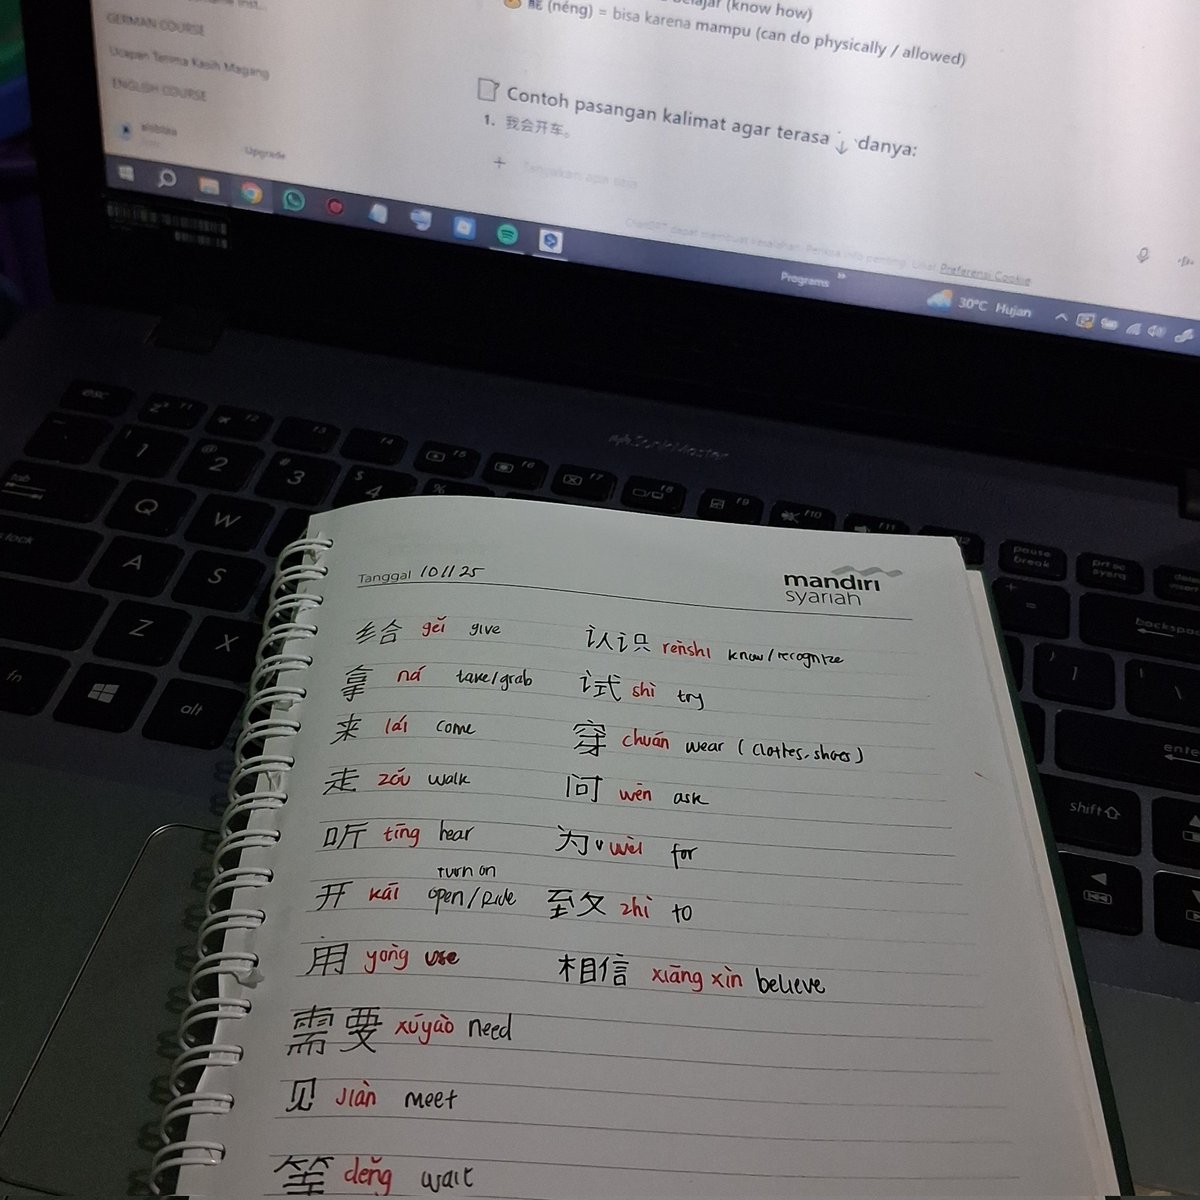 GERMAN COURSE
Ucapan Terima Kasih Magang
ENGLISH COURSE
Upgrade
(know how)
能 (néng) = bisa karena mampu (can do physically / allowed)
Contoh pasangan kalimat agar terasa danya:
1. 我会开车。
Preferensi Cookie
Programs
30°C Hujan
esc
1 2 3 4
tab
Q W
A S
Z X
fn alt
pause break
prt sc sysrq
backspace
enter
shift
Tanggal 10 11 25
mandiri
syariah
给 gěi give
认识 rènshi know/recognize
拿 ná take/grab
试 shì try
来 lái come
穿 chuān wear (clothes, shoes)
走 zǒu walk
问 wēn ask
听 tīng hear
为 wèi for
turn on
开 kāi open/ride
至攵 zhì to
用 yòng use
相信 xiāng xìn believe
需要 xūyào need
见 jiàn meet
等 děng wait